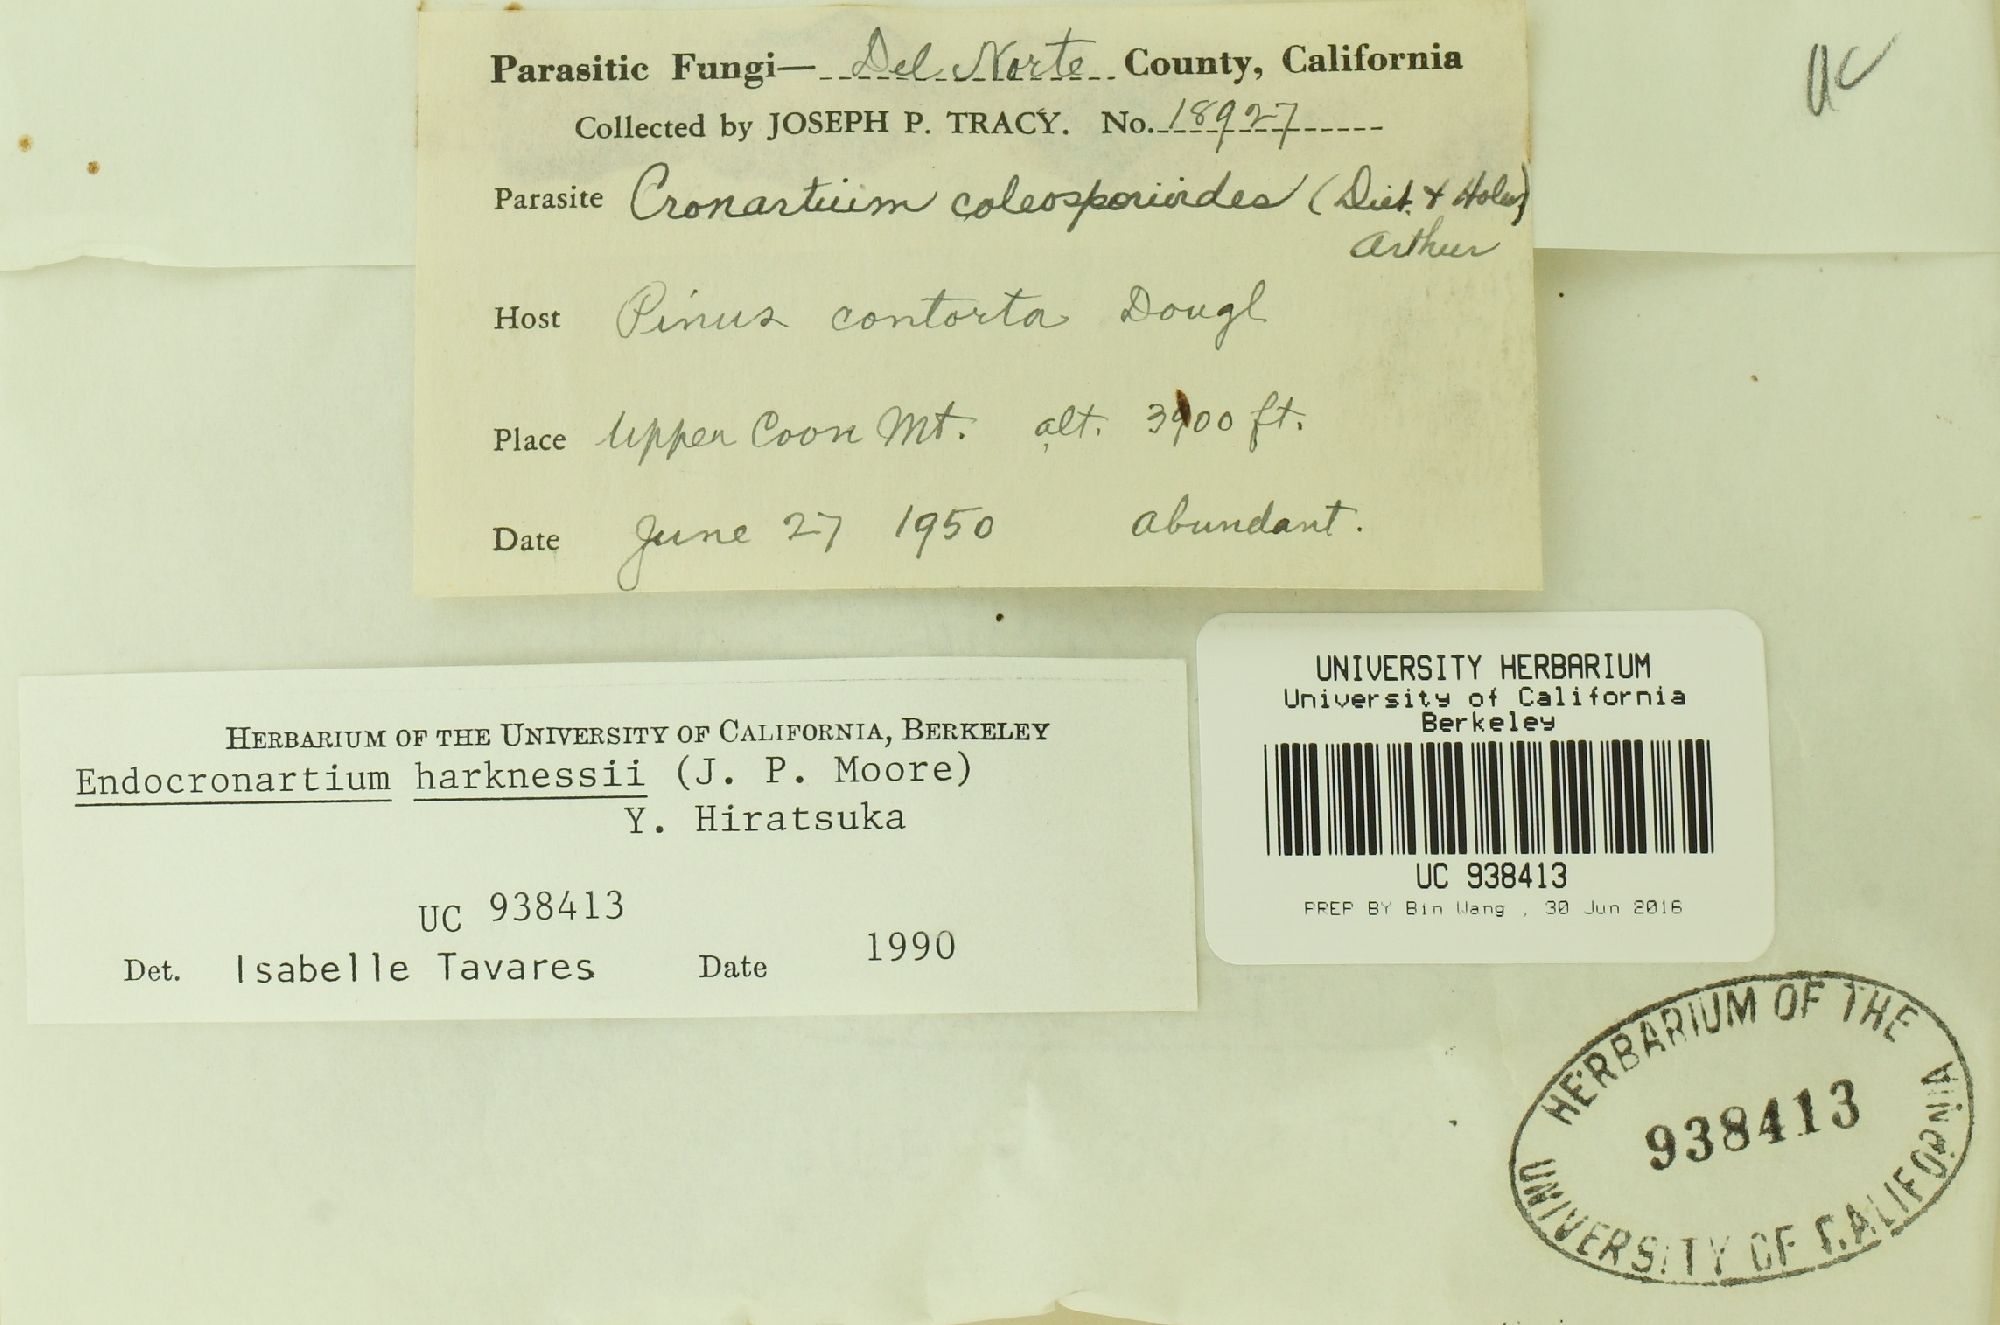 Parasitic Fungi— Del Norte County, California
Collected by JOSEPH P. TRACY. No. 18927
Parasite Cronartium coleosporioides (Diet. & Holw)
Arthur
Host Pinus contorta Dougl
Place Upper Coon Mt. alt. 3900 ft.
Date June 27 1950 abundant.
UC
HERBARIUM OF THE UNIVERSITY OF CALIFORNIA, BERKELEY
Endocronartium harknessii (J. P. Moore)
Y. Hiratsuka
UC 938413
Det. Isabelle Tavares Date 1990
UNIVERSITY HERBARIUM
University of California
Berkeley
UC 938413
PREP BY Bin Wang , 30 Jun 2016
HERBARIUM OF THE
938413
UNIVERSITY OF CALIFORNIA